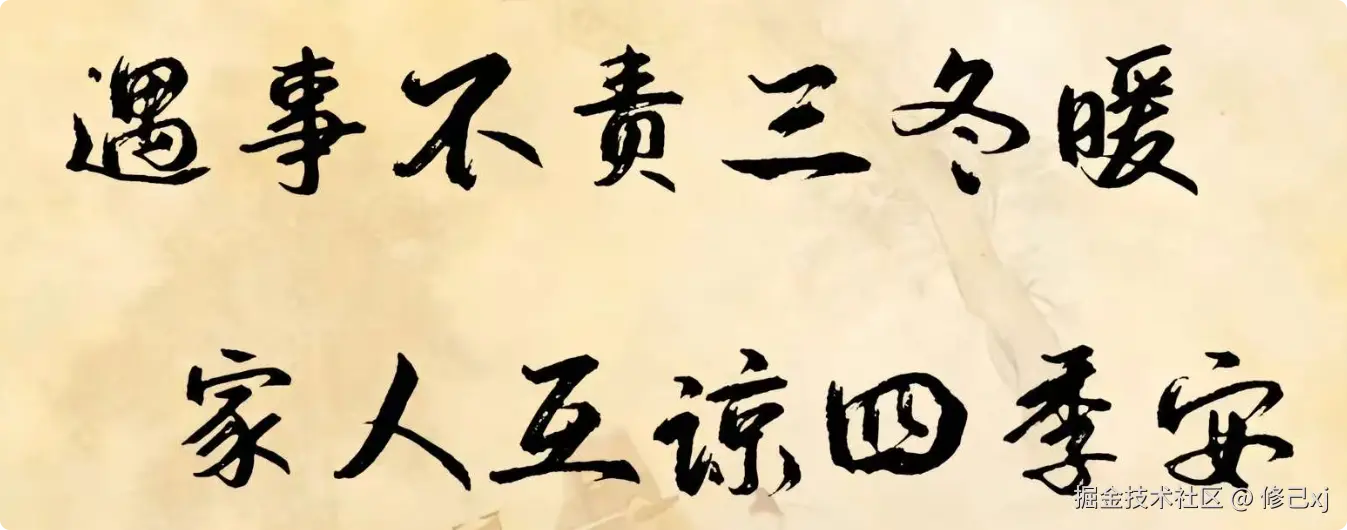 遇事不责三冬暖
家人互谅四季安
掘金技术社区 @ 修己xj